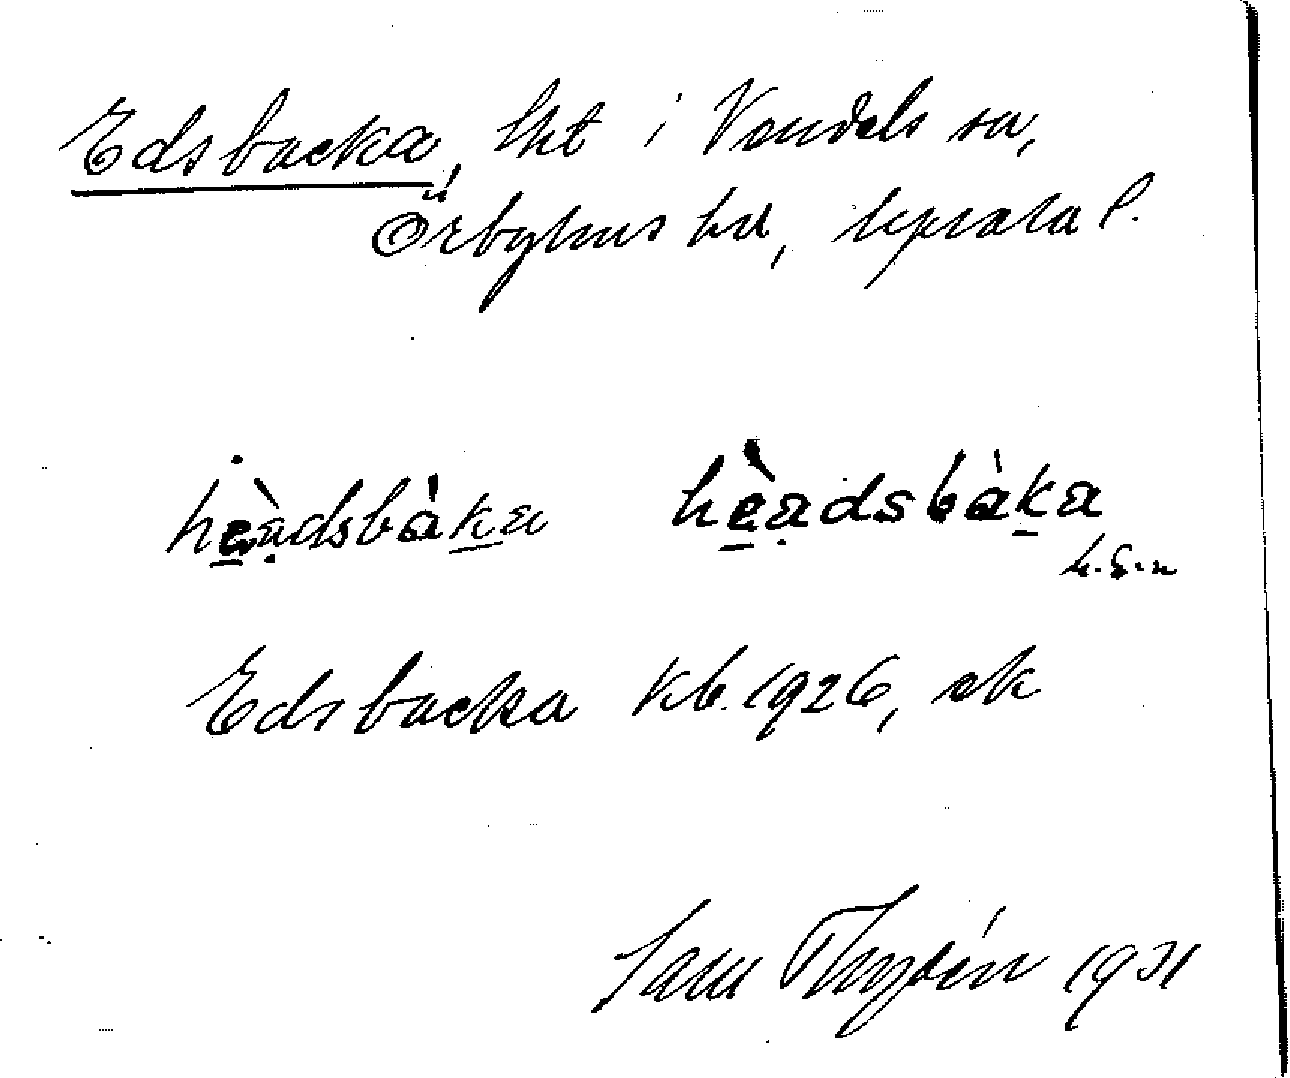 Edsbacka, lht i Vendels sn,
Örbyhus hd, Uppsala l.
hèạdsbàka hèạdsbàka
h.S-n
Edsbacka kb. 1926, ek
Sam Thydén 1931